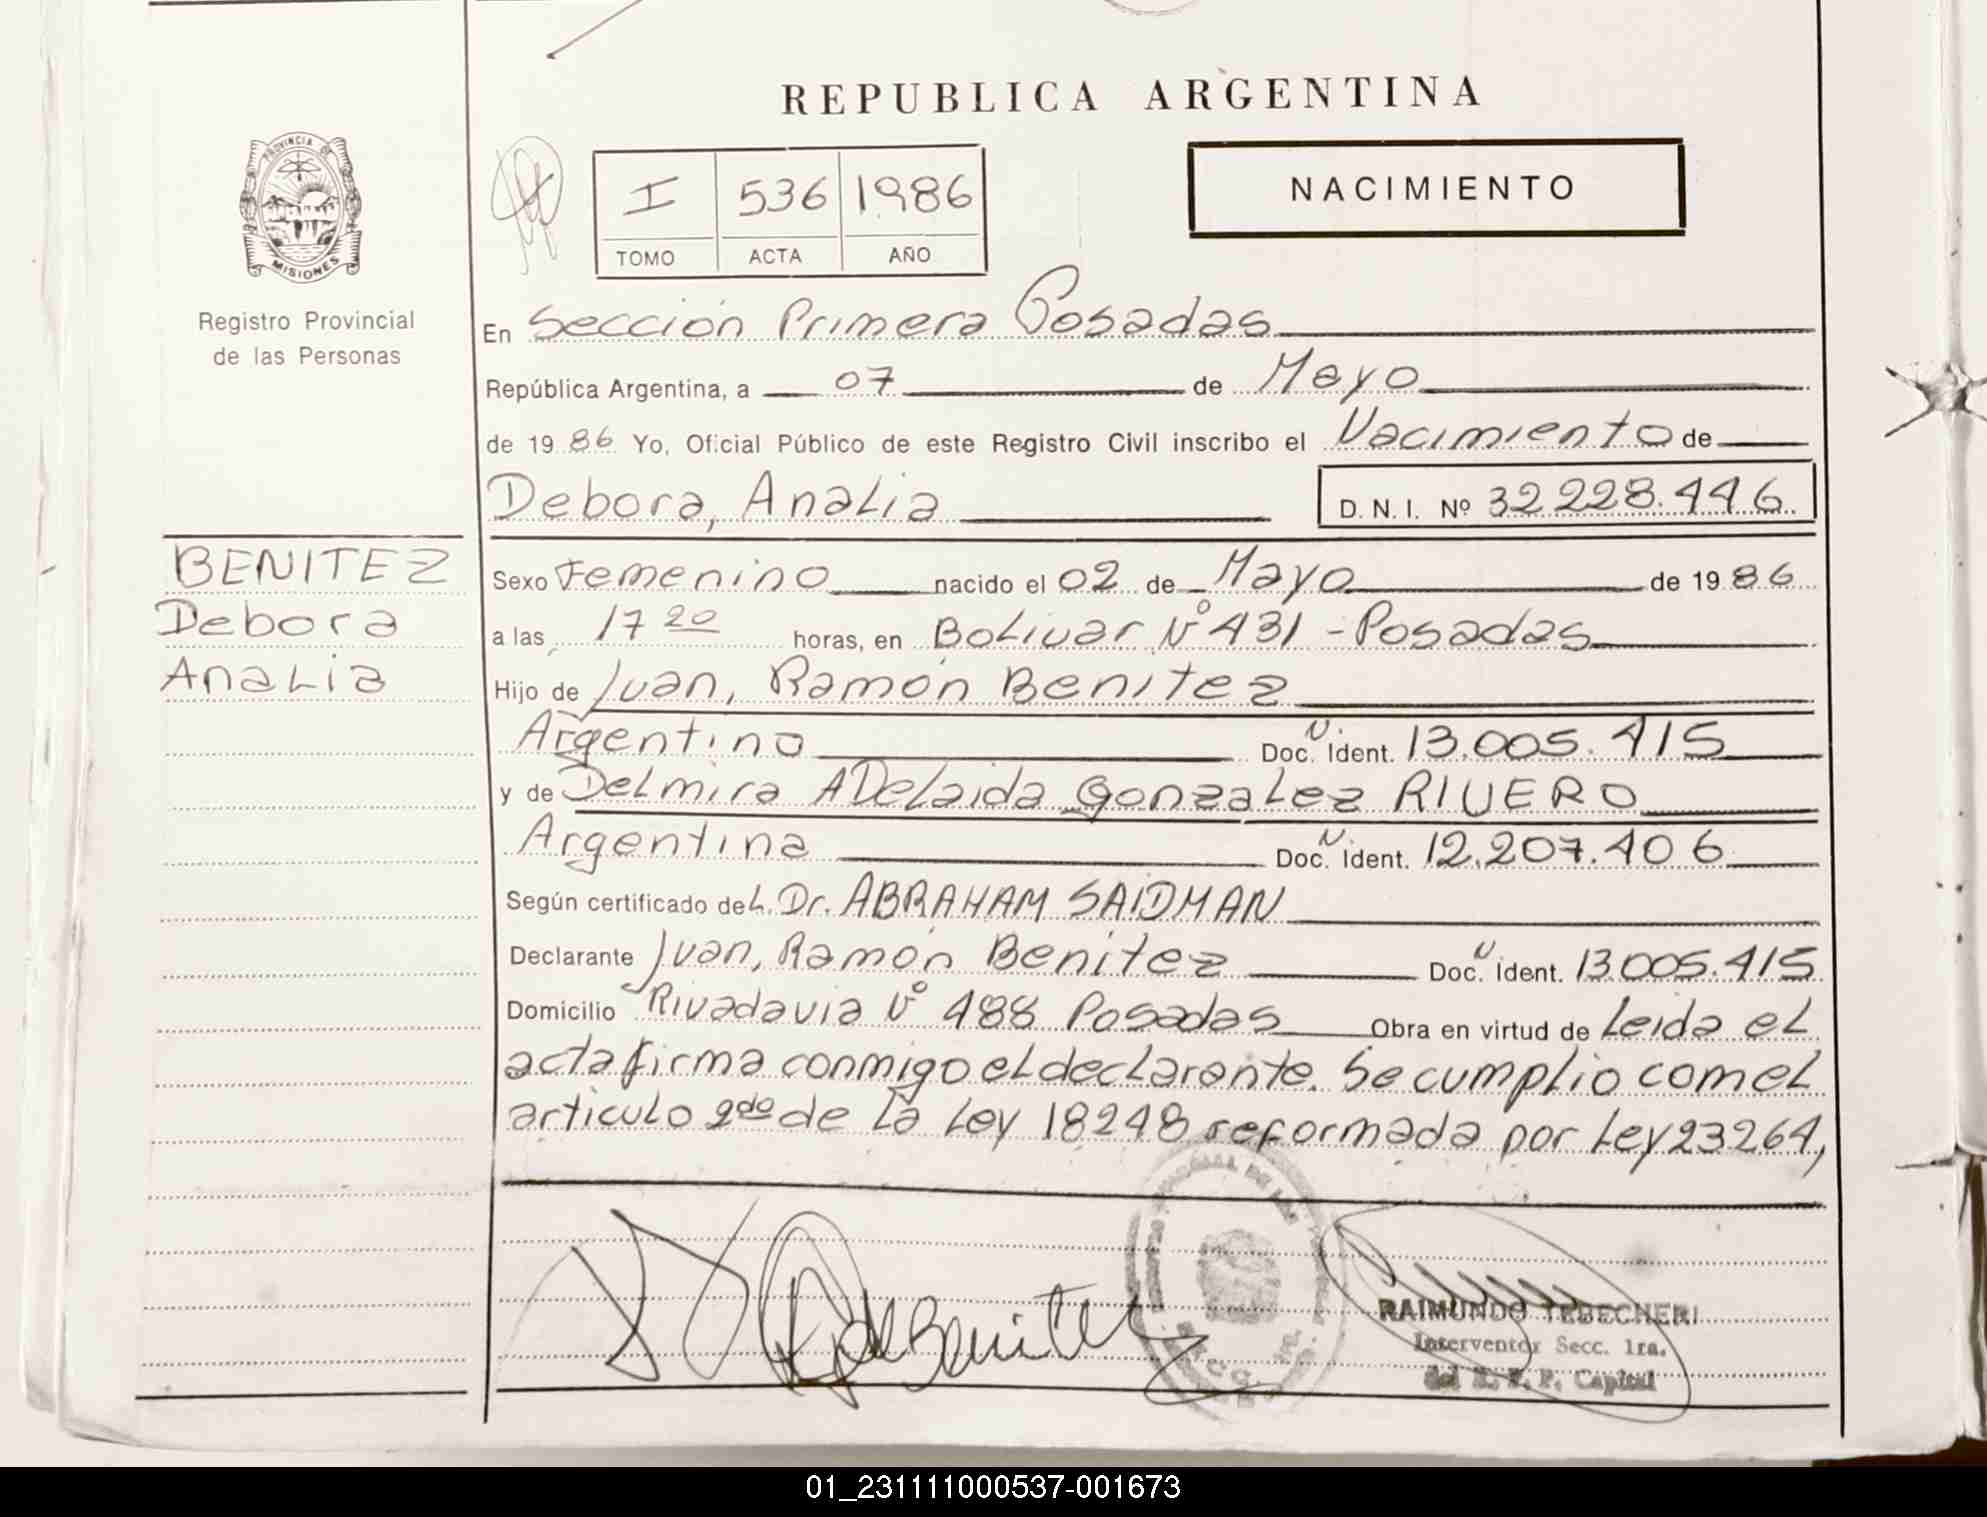 REPUBLICA ARGENTINA
PROVINCIA DE
MISIONES
Registro Provincial
de las Personas
I 536 1986
TOMO ACTA AÑO
NACIMIENTO
En Sección Primera Posadas
República Argentina, a 07 de Mayo
de 19 86 Yo, Oficial Público de este Registro Civil inscribo el Nacimiento de
Debora, Analia D. N. I. Nº 32.228.446
BENITEZ
Debora
Analia
Sexo Femenino nacido el 02 de Mayo de 19 86
a las 17 20 horas, en Bolivar Nº 431 - Posadas
Hijo de Juan, Ramón Benitez
Argentino Doc. N Ident. 13.005.415
y de Delmira ADelaida Gonzalez RIVERO
Argentina Doc. N Ident. 12.207.406
Según certificado del Dr. ABRAHAM SAIDMAN
Declarante Juan, Ramón Benitez Doc. N Ident. 13.005.415
Domicilio Rivadavia Nº 488 Posadas Obra en virtud de Leida el
acta firma conmigo el declarante. Se cumplio com el
articulo 2do de la Ley 18248 reformada por Ley 23264,
de Benitez
RAIMUNDO TEBECHERI
Interventor Secc. 1ra.
del R. P. P. Capital
01_231111000537-001673